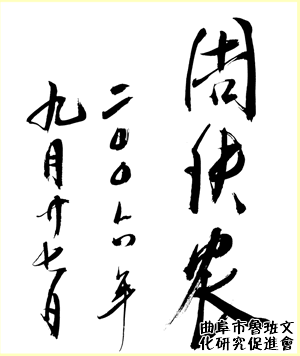 周侠农
二〇〇六年
九月廿七日
曲阜市魯班文
化研究促進會